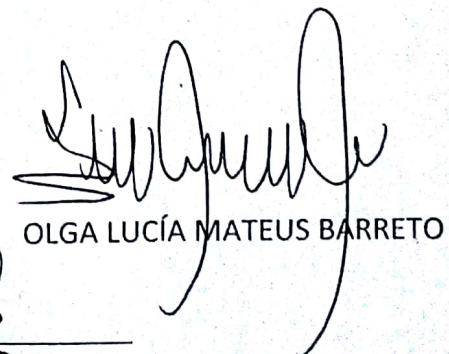 OLGA LUCÍA MATEUS BARRETO